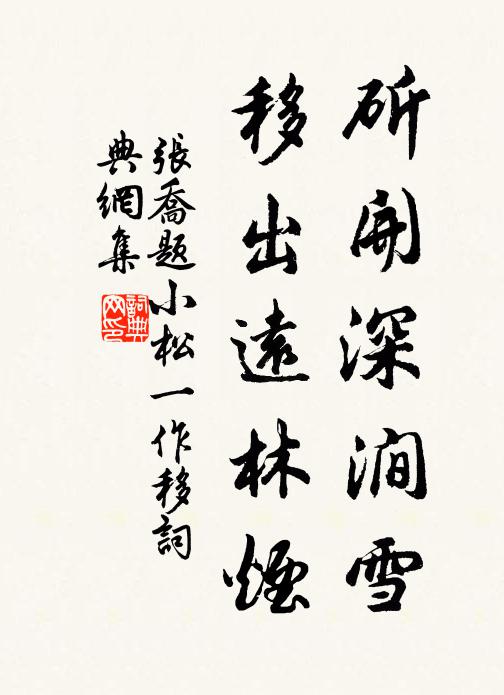 斫開深澗雪
移出遠林煙
張喬題小松一作移詞
典網集
詞典網印